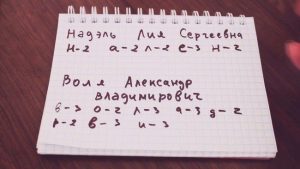 Надэль Лия Сергеевна
н-2 а-2 л-2 е-3 н-2
Воля Александр
Владимирович
в-3 о-2 л-3 а-3 д-2
р-2 в-3 и-3